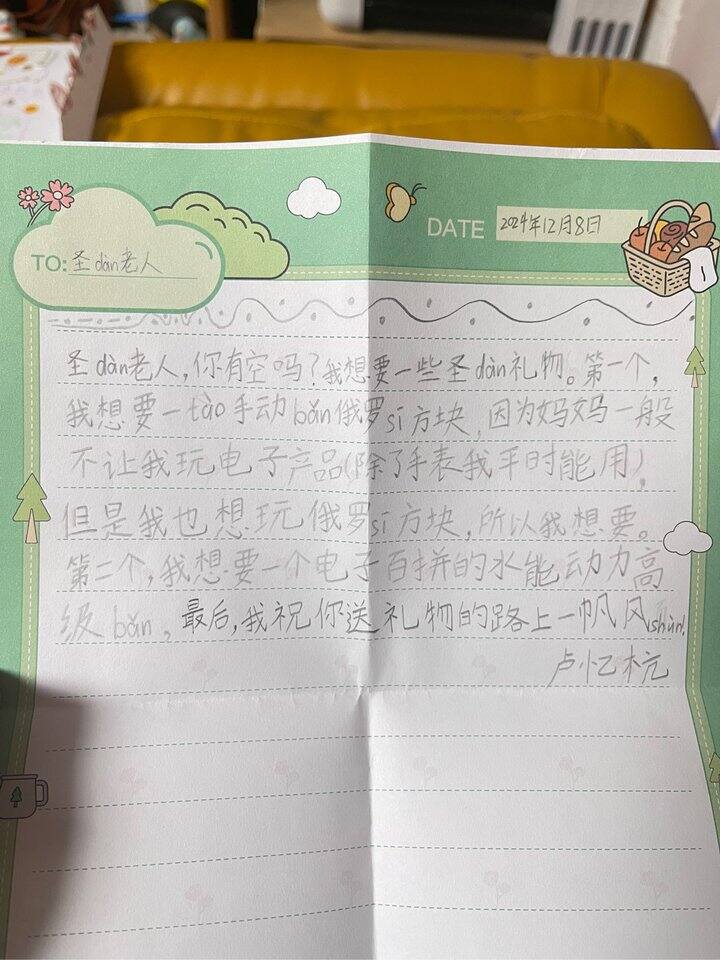 DATE 2024年12月8日
TO: 圣dàn老人
圣dàn老人,你有空吗?我想要一些圣dàn礼物。第一个,
我想要一tào手动bǎn俄罗sī方块,因为妈妈一般
不让我玩电子产品(除了手表我平时能用),
但是我也想玩俄罗sī方块,所以我想要。
第二个,我想要一个电子百拼的水能动力高
级bǎn,最后,我祝你送礼物的路上一帆风shùn.
卢忆杭